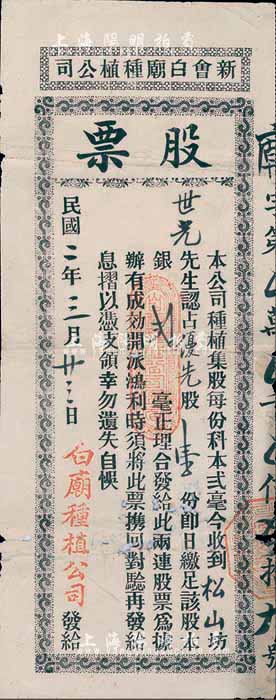 新會白廟種植公司
股票
本公司種植集股每份科本弍毫今收到 松山 坊
世光 先生認占 優先 股 壹 份即日繳足該股本
銀 毫正理合發給此兩連股票為據
辦有成効開派溢利時須將此票携回對驗再發給
息摺以憑支領幸勿遺失自悞
民國二年三月廿二日
白廟種植公司 發給